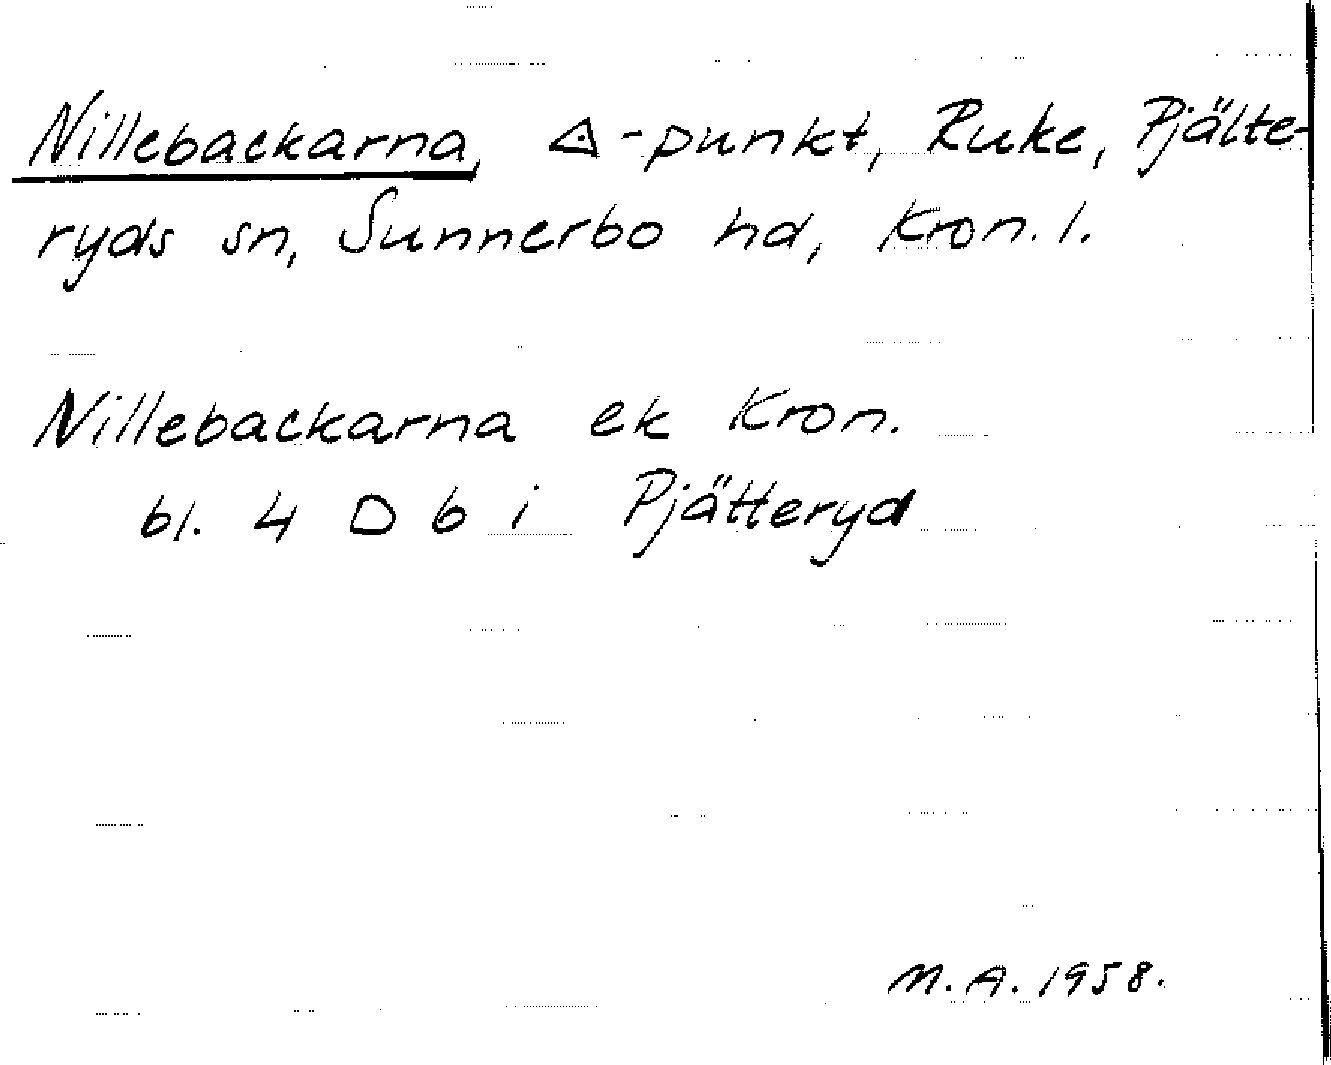 Nillebackarna, ◬-punkt, Ruke, Pjätte-
ryds sn, Sunnerbo hd, Kron. l.
Nillebackarna ek Kron.
bl. 4 D b i Pjätteryd
M.A. 1958.